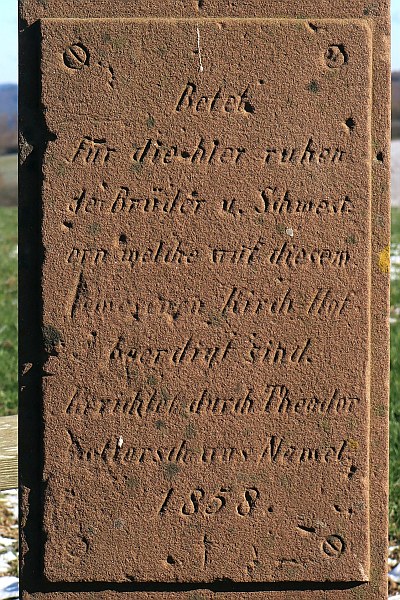 Betet
Für die hier ruhen
de Brüder u. Schwest
ern welche auf diesem
Kirch Hof
beerdigt sind.
Errichtet durch Theodor
aus
1858.